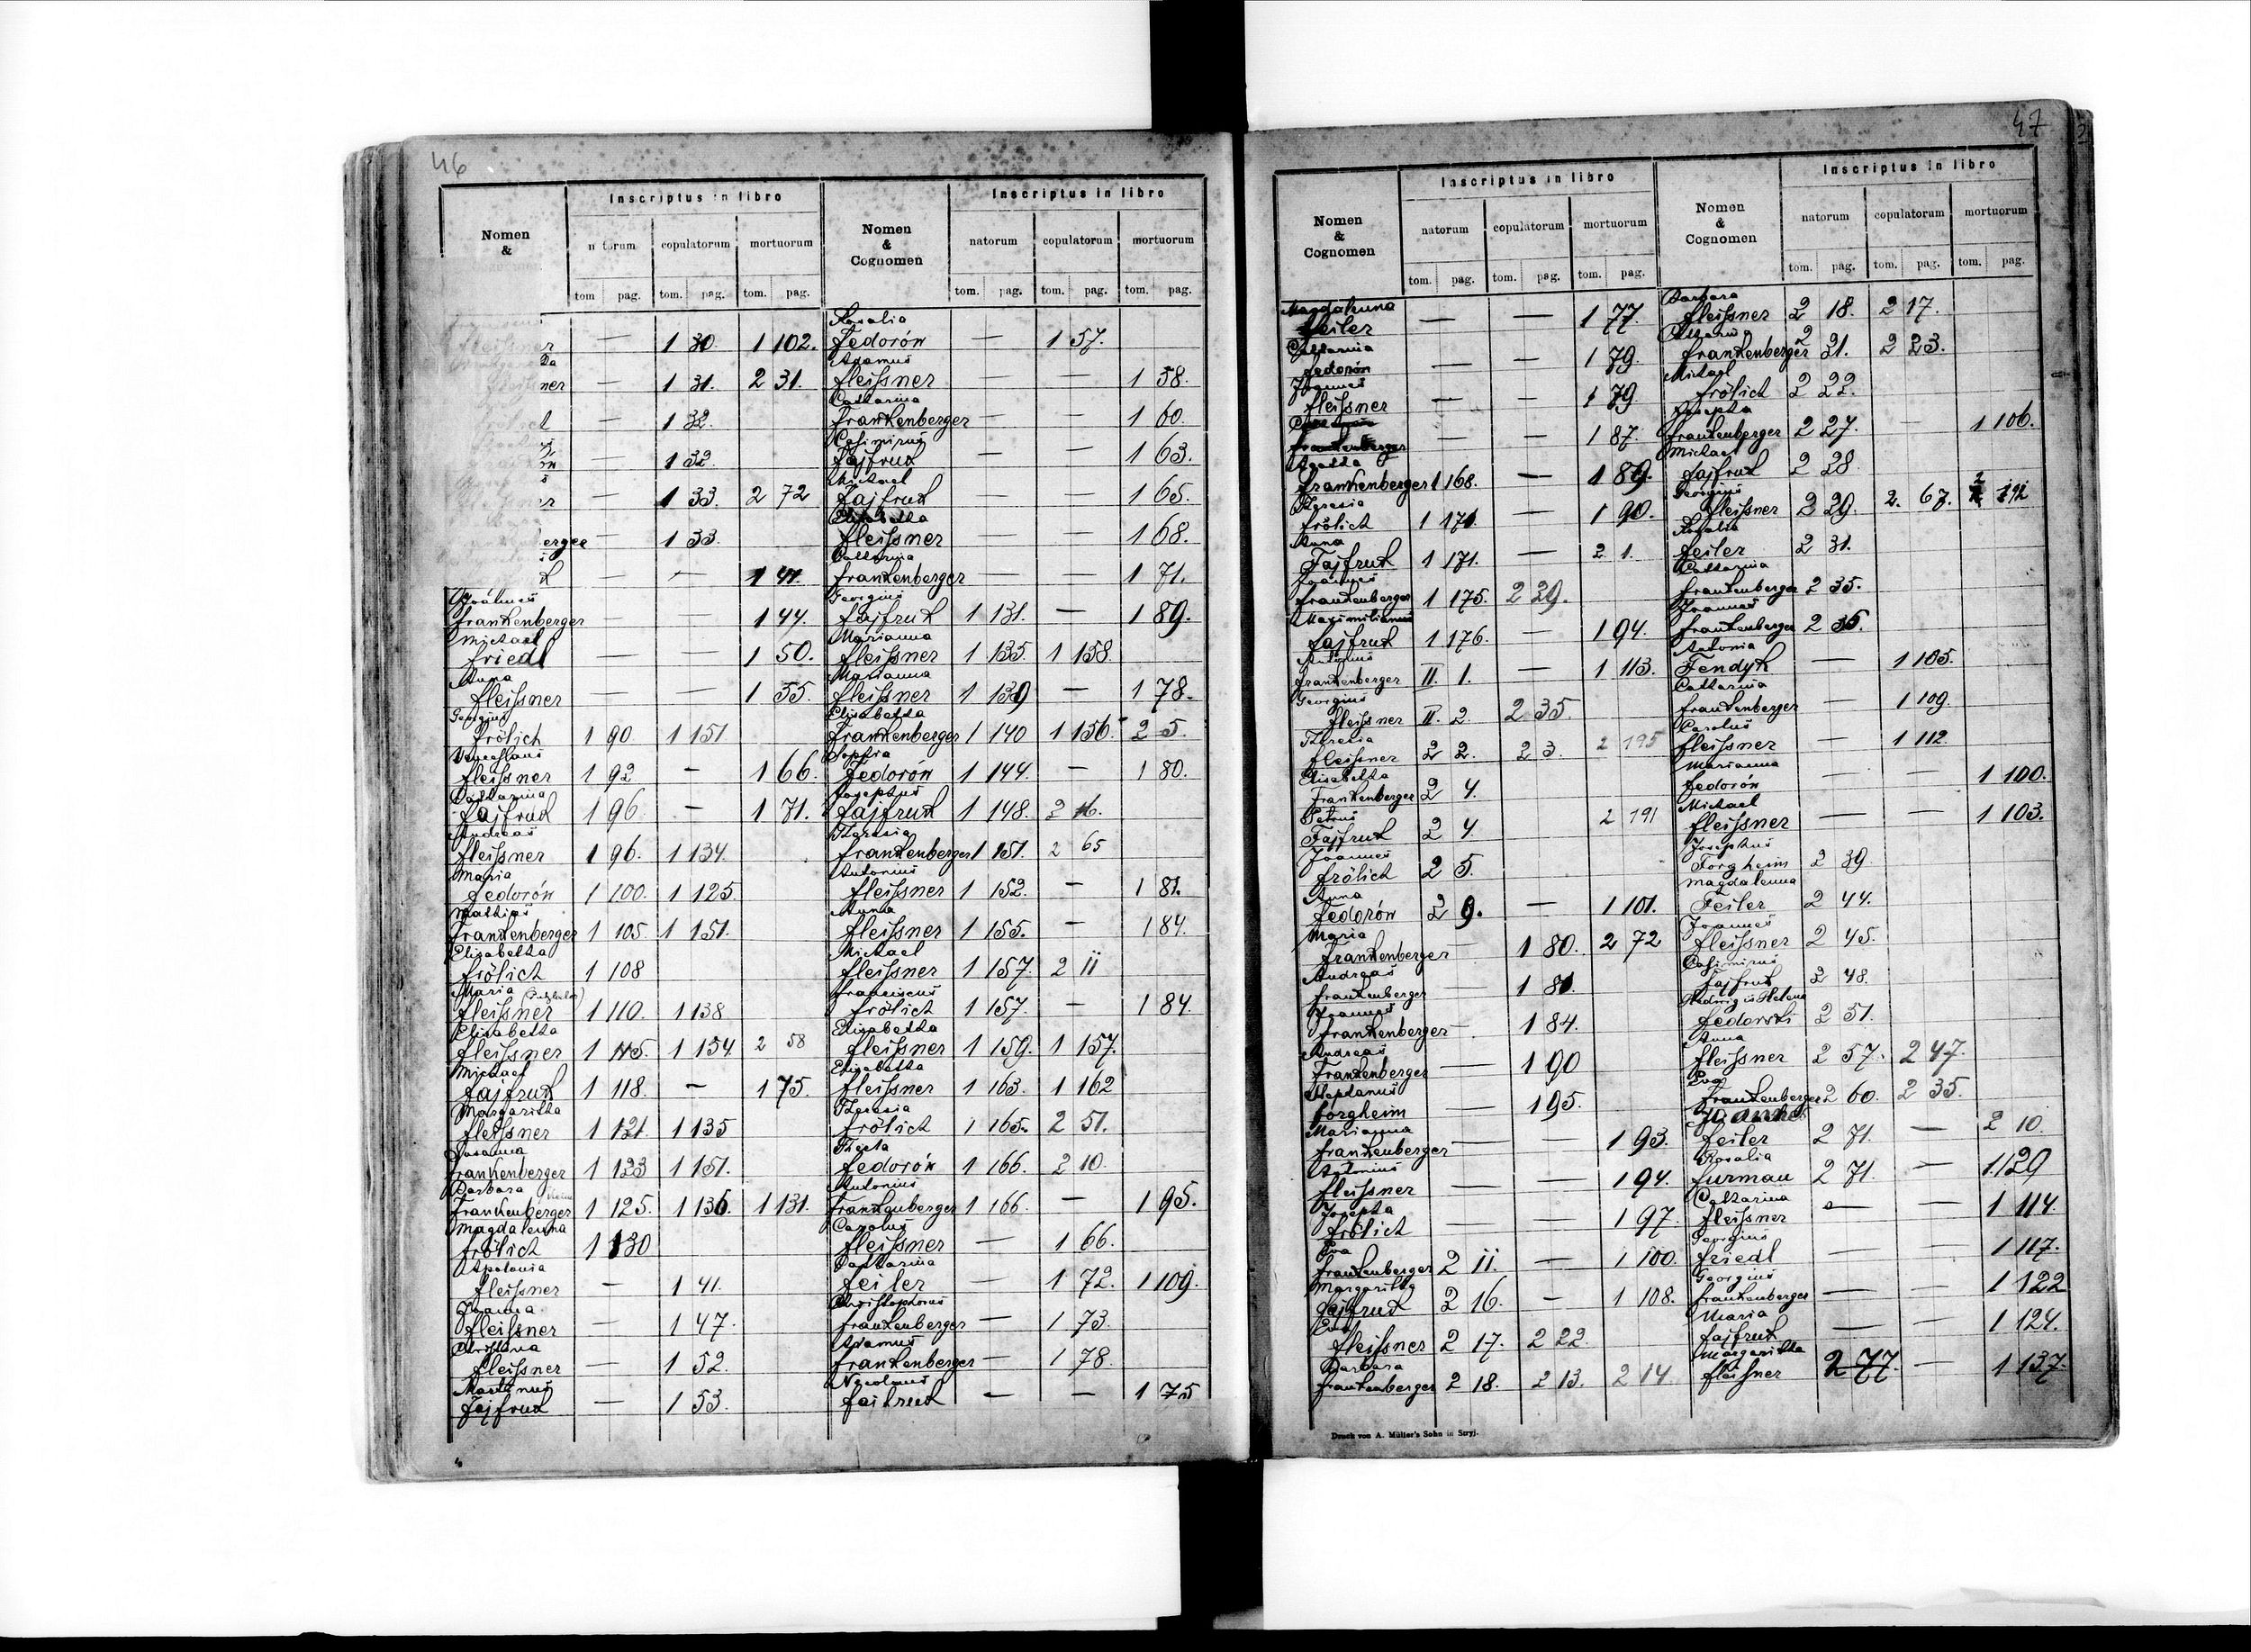 46
Inscriptus in libro
Nomen
&
natorum copulatorum mortuorum
tom pag. tom. pag. tom. pag.
— 1 30. 1 102.
ner — 1 31. 2 31.
— 1 32.
— 1 32.
— 1 33. 2 72
erger — 1 33.
— — 1 41.
Joannes
Frankenberger — — 1 44.
Michael
Friedl — — 1 50.
Anna
Fleissner — — 1 55.
Georgius
Frölich 1 90. 1 151.
Venceslaus
Fleissner 1 92 — 1 66.
Catharina
Fajfruk 1 96. — 1 71.
Andreas
Fleissner 1 96. 1 134.
Maria
Fedorón 1 100. 1 125.
Mathias
Frankenberger 1 105. 1 151.
Elisabetha
Frölich 1 108
Maria
Fleissner 1 110. 1 138
Elisabetha
Fleissner 1 115. 1 154. 2 58
Michael
Fajfruk 1 118. — 1 75.
Margaritha
Fleissner 1 121. 1 135
Susanna
Frankenberger 1 123 1 151.
Barbara
Frankenberger 1 125. 1 136. 1 131.
Magdalenna
Frölich 1 130
Apolonia
Fleissner — 1 41.
Joanna
Fleissner — 1 47.
Christina
Fleissner — 1 52.
Martinus
Fajfruk — 1 53.
Inscriptus in libro
Nomen
&
Cognomen
natorum copulatorum mortuorum
tom. pag. tom. pag. tom. pag.
Rosalia
Fedorón — 1 57.
Adamus
Fleissner — — 1 58.
Catharina
Frankenberger — — 1 60.
Casimirus
Fajfruk — — 1 63.
Michael
Fajfruk — — 1 65.
Elisabetha
Fleissner — — 1 68.
Catharina
Frankenberger — — 1 71.
Georgius
Fajfruk 1 131. — 1 89.
Marianna
Fleissner 1 135. 1 158.
Marianna
Fleissner 1 139 — 1 78.
Elisabetha
Frankenberger 1 140 1 156. 2 5.
Sophia
Fedorón 1 144. — 1 80.
Josephus
Fajfruk 1 148. 2 16.
Theresia
Frankenberger 1 151. 2 65
Antonius
Fleissner 1 152. — 1 81.
Anna
Fleissner 1 155. — 1 84.
Michael
Fleissner 1 157. 2 11
Franciscus
Frölich 1 157. — 1 84.
Elisabetha
Fleissner 1 159. 1 157.
Elisabetha
Fleissner 1 163. 1 162
Theresia
Frölich 1 165. 2 51.
Thecla
Fedorón 1 166. 2 10.
Antonius
Frankenberger 1 166. — 1 95.
Carolus
Fleissner — 1 66.
Catharina
Feiler — 1 72. 1 109.
Christophorus
Frankenberger — 1 73.
Adamus
Frankenberger — 1 78.
Nicolaus
Faifruk — — 1 75
47
Inscriptus in libro
Nomen
&
Cognomen
natorum copulatorum mortuorum
tom. pag. tom. pag. tom. pag.
Magdalenna
Feiler — — 1 77.
Catharina
Fedorón — — 1 79.
Joannes
Fleissner — — 1 79
Frankenberger — — 1 87.
Agatha
Frankenberger 1 168. — 1 89.
Theresia
Frölich 1 171. — 1 90.
Anna
Fajfruk 1 171. — 2 1.
Joannes
Frankenberger 1 175. 2 29.
Maximilianus
Fajfruk 1 176. — 1 94.
Antonius
Frankenberger II. 1. — 1 113.
Georgius
Fleissner II. 2. 2 35.
Theresia
Fleissner 2 2. 2 3. 2 195
Elisabetha
Frankenberger 2 4.
Petrus
Fajfruk 2 4. 2 191
Joannes
Frölich 2 5.
Anna
Fedorón 2 9. — 1 101.
Maria
Frankenberger — 1 80. 2 72
Andreas
Frankenberger — 1 81.
Joannes
Frankenberger — 1 84.
Andreas
Frankenberger — 1 90
Stephanus
Forgheim — 1 95.
Marianna
Frankenberger — — 1 93.
Antonius
Fleissner — — 1 94.
Josepha
Frölich — — 1 97.
Eva
Frankenberger 2 11. — 1 100.
Margaritha
Fajfruk 2 16. — 1 108.
Eva
Fleissner 2 17. 2 22.
Barbara
Frankenberger 2 18. 2 13. 2 14
Druck von A. Müller's Sohn in Stryj.
Inscriptus in libro
Nomen
&
Cognomen
natorum copulatorum mortuorum
tom. pag. tom. pag. tom. pag.
Barbara
Fleissner 2 18. 2 17.
Frankenberger 2 21. 2 23.
Michael
Frölich 2 22.
Josepha
Frankenberger 2 27. — 1 106.
Michael
Fajfruk 2 28
Georgius
Fleissner 2 29. 2. 67. 2 192
Rosalia
Feiler 2 31.
Catharina
Frankenberger 2 35.
Joannes
Frankenberger 2 35.
Antonia
Fendyk — 1 105.
Catharina
Frankenberger — 1 109.
Carolus
Fleissner — 1 112.
Marianna
Fedorón — — 1 100.
Michael
Fleissner — — 1 103.
Josephus
Forgheim 2 39
Magdalenna
Feiler 2 44.
Joannes
Fleissner 2 45.
Casimirus
Fajfruk 2 48.
Hedwigis Helena
Fedorski 2 51.
Anna
Fleissner 2 57. 2 47.
Eva
Frankenberger 2 60. 2 35.
Joannes
Feiler 2 71. — 2 10.
Rosalia
Furman 2 71. — 1 129
Catharina
Fleissner — 1 114.
Georgius
Friedl — — 1 117.
Georgius
Frankenberger — — 1 122
Maria
Fajfruk — — 1 124.
Margaritha
Fleisner 2 77. — 1 137.